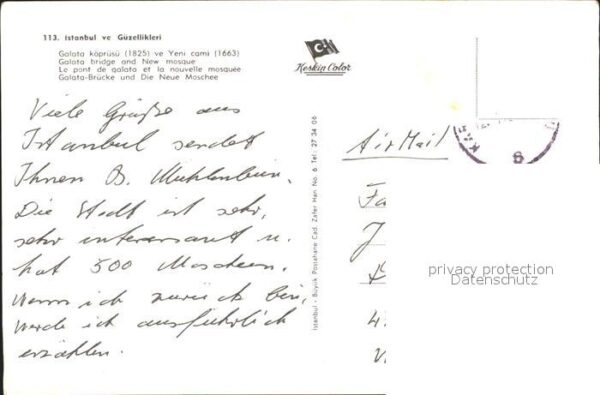 113. Istanbul ve Güzellikleri
Galata köprüsü (1825) ve Yeni cami (1663)
Galata bridge and New mosque
Le pont de galata et la nouvelle mosquée
Galata-Brücke und Die Neue Moschee
Keskin Color
Viele Grüße aus
Istanbul sendet
Ihnen
Die Stadt ist sehr,
sehr interessant u.
hat 500 Moscheen.
Wenn ich zurück bin,
werde ich ausführlich
erzählen.
Istanbul - Büyük Postahane Cad. Zafer Han No. 6 Tel: 27 34 06
Air Mail
privacy protection
Datenschutz